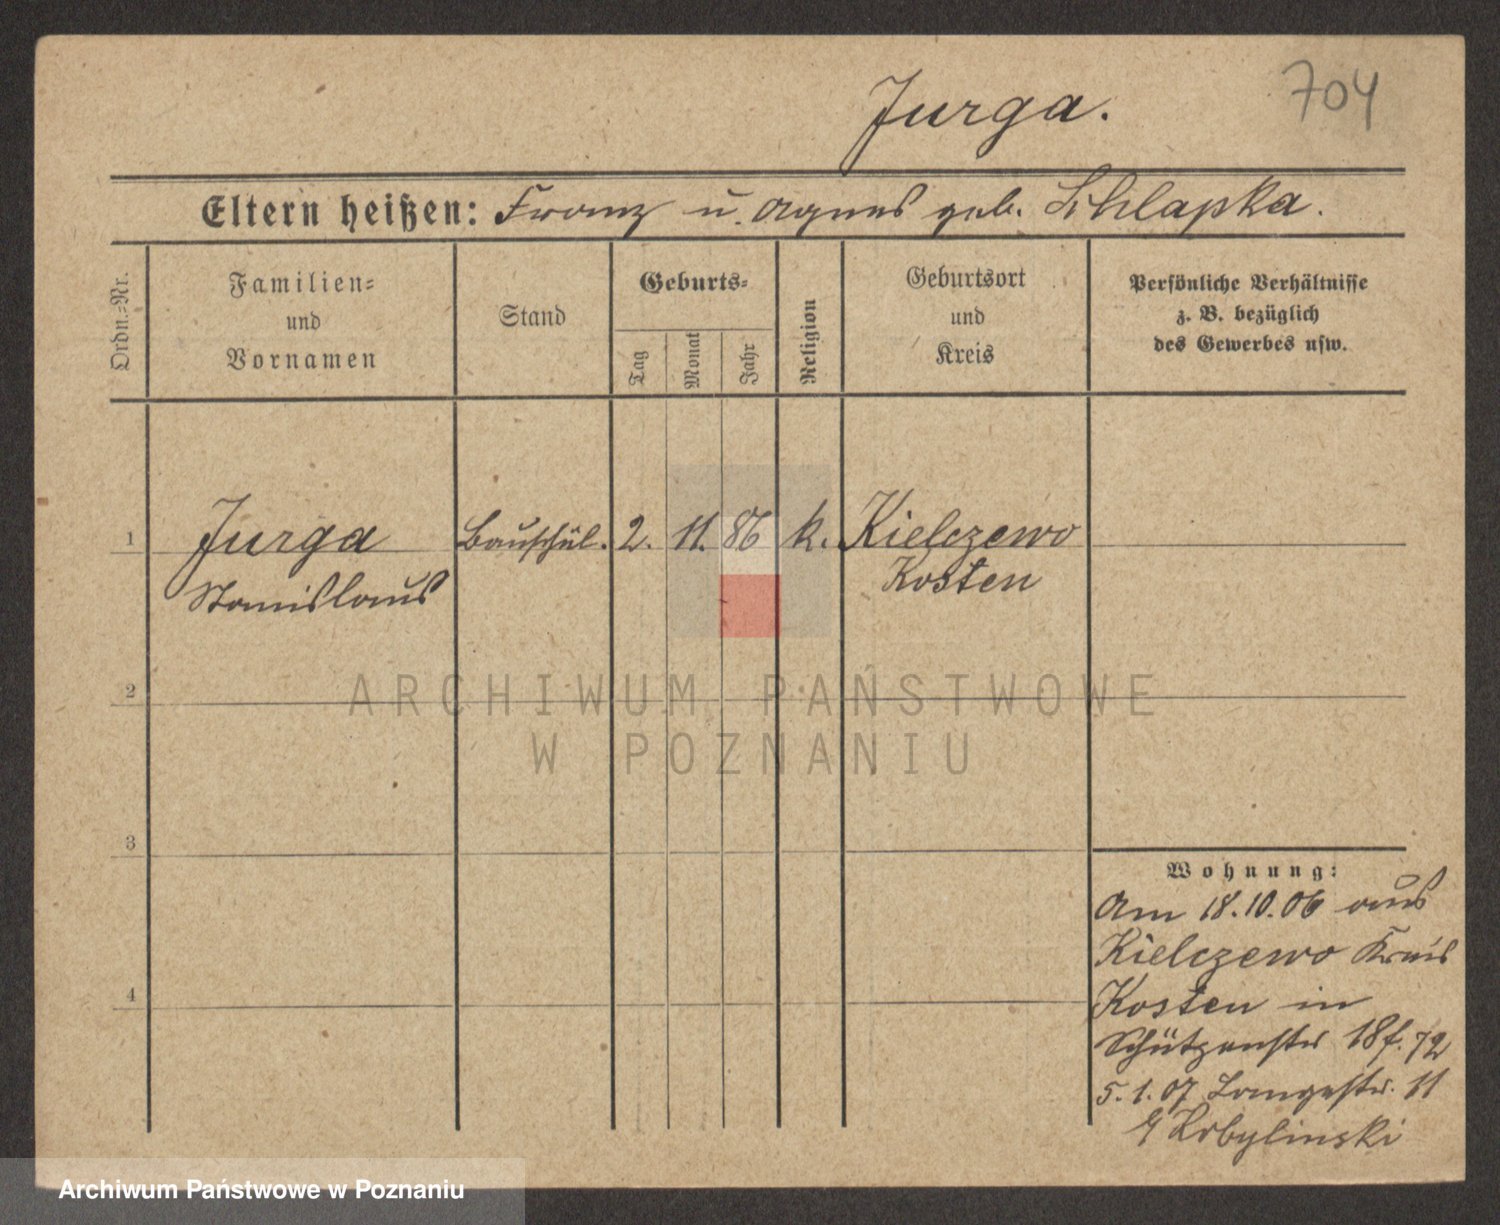 Jurga.
704
Eltern heißen: Franz u. Agnes geb. Schlapka.
Ordn.-Nr.
Familien-
und
Vornamen
Stand
Geburts-
Tag
Monat
Jahr
Religion
Geburtsort
und
Kreis
Persönliche Verhältnisse
z. B. bezüglich
des Gewerbes usw.
1
Jurga
Stanislaus
Bauschül.
2.
11.
86
k.
Kielczewo
Kosten
2
ARCHIWUM PAŃSTWOWE
W POZNANIU
3
4
Wohnung:
Am 18.10.06 aus
Kielczewo Kreis
Kosten in
Schützenstr 18f. 72
5.1.07 Langestr. 11
Kobylinski
Archiwum Państwowe w Poznaniu